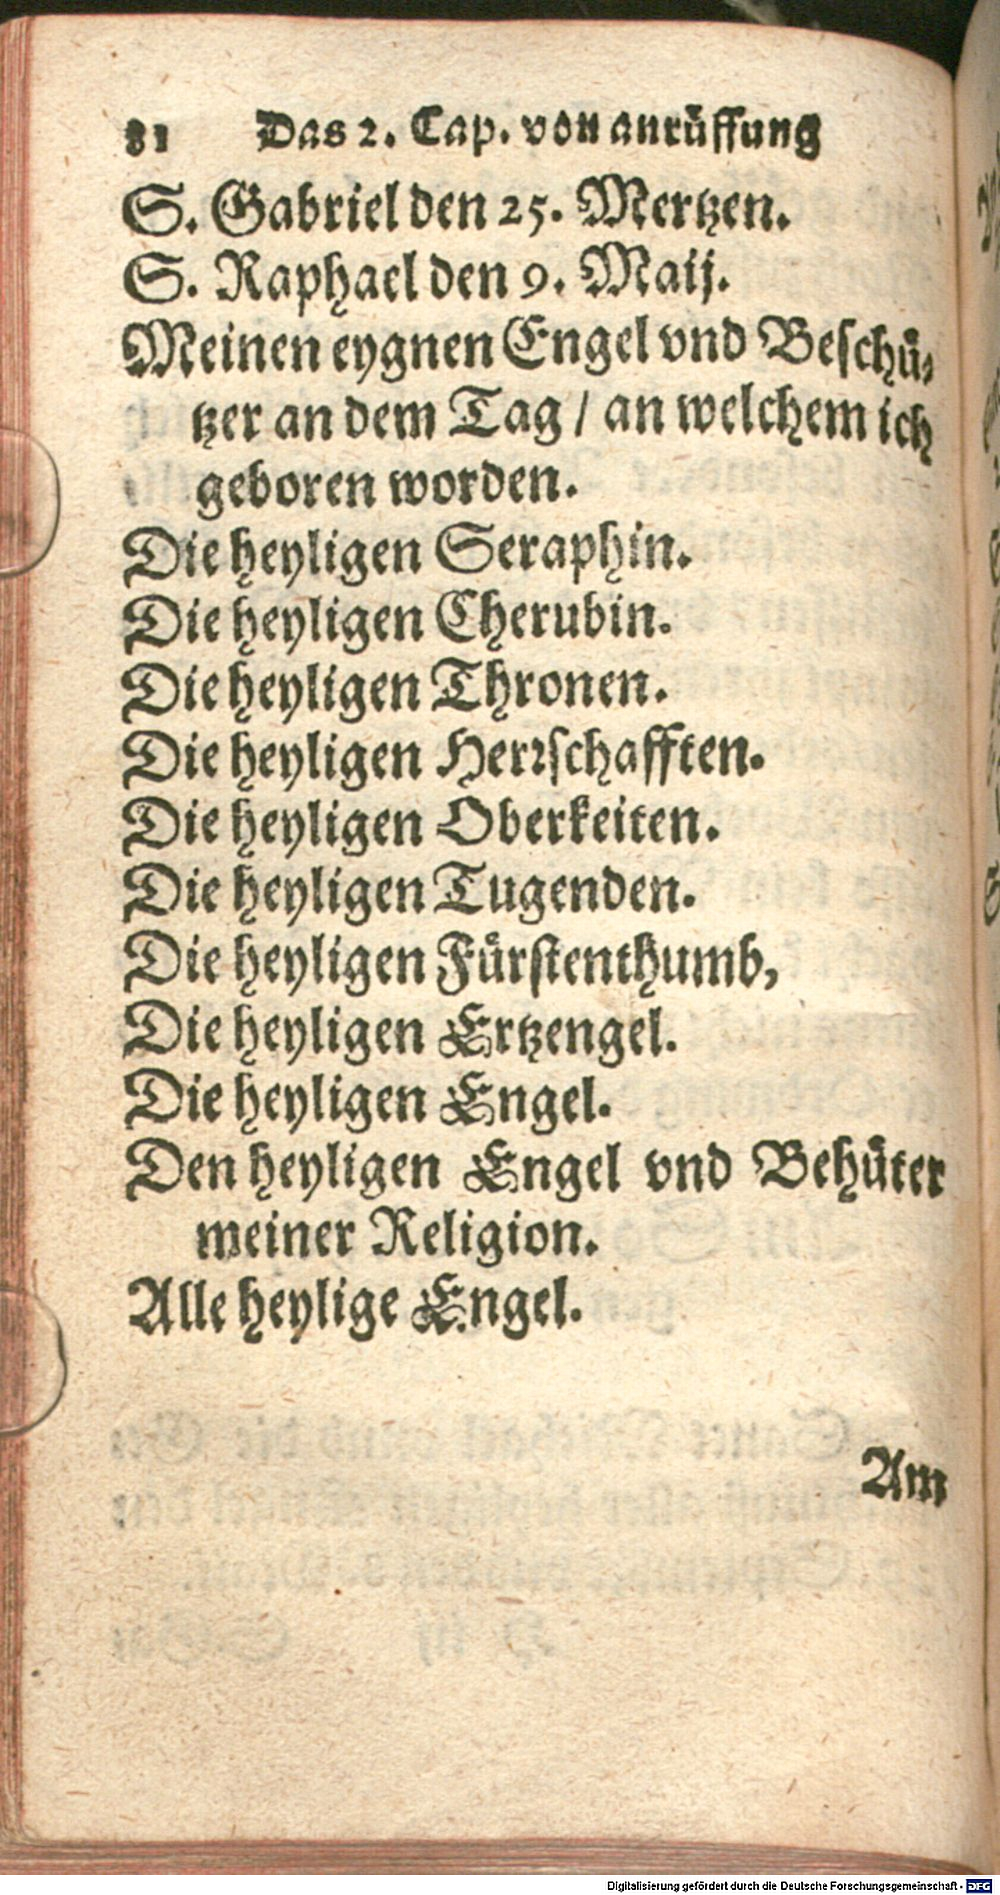 81 Das 2. Cap. von anrüffung
S. Gabriel den 25. Mertzen.
S. Raphael den 9. Maij.
Meinen eygnen Engel vnd Beschü-
tzer an dem Tag / an welchem ich
geboren worden.
Die heyligen Seraphin.
Die heyligen Cherubin.
Die heyligen Thronen.
Die heyligen Herrschafften.
Die heyligen Oberkeiten.
Die heyligen Tugenden.
Die heyligen Fürstenthumb,
Die heyligen Ertzengel.
Die heyligen Engel.
Den heyligen Engel vnd Behüter
meiner Religion.
Alle heylige Engel.
Am
Digitalisierung gefördert durch die Deutsche Forschungsgemeinschaft - DFG